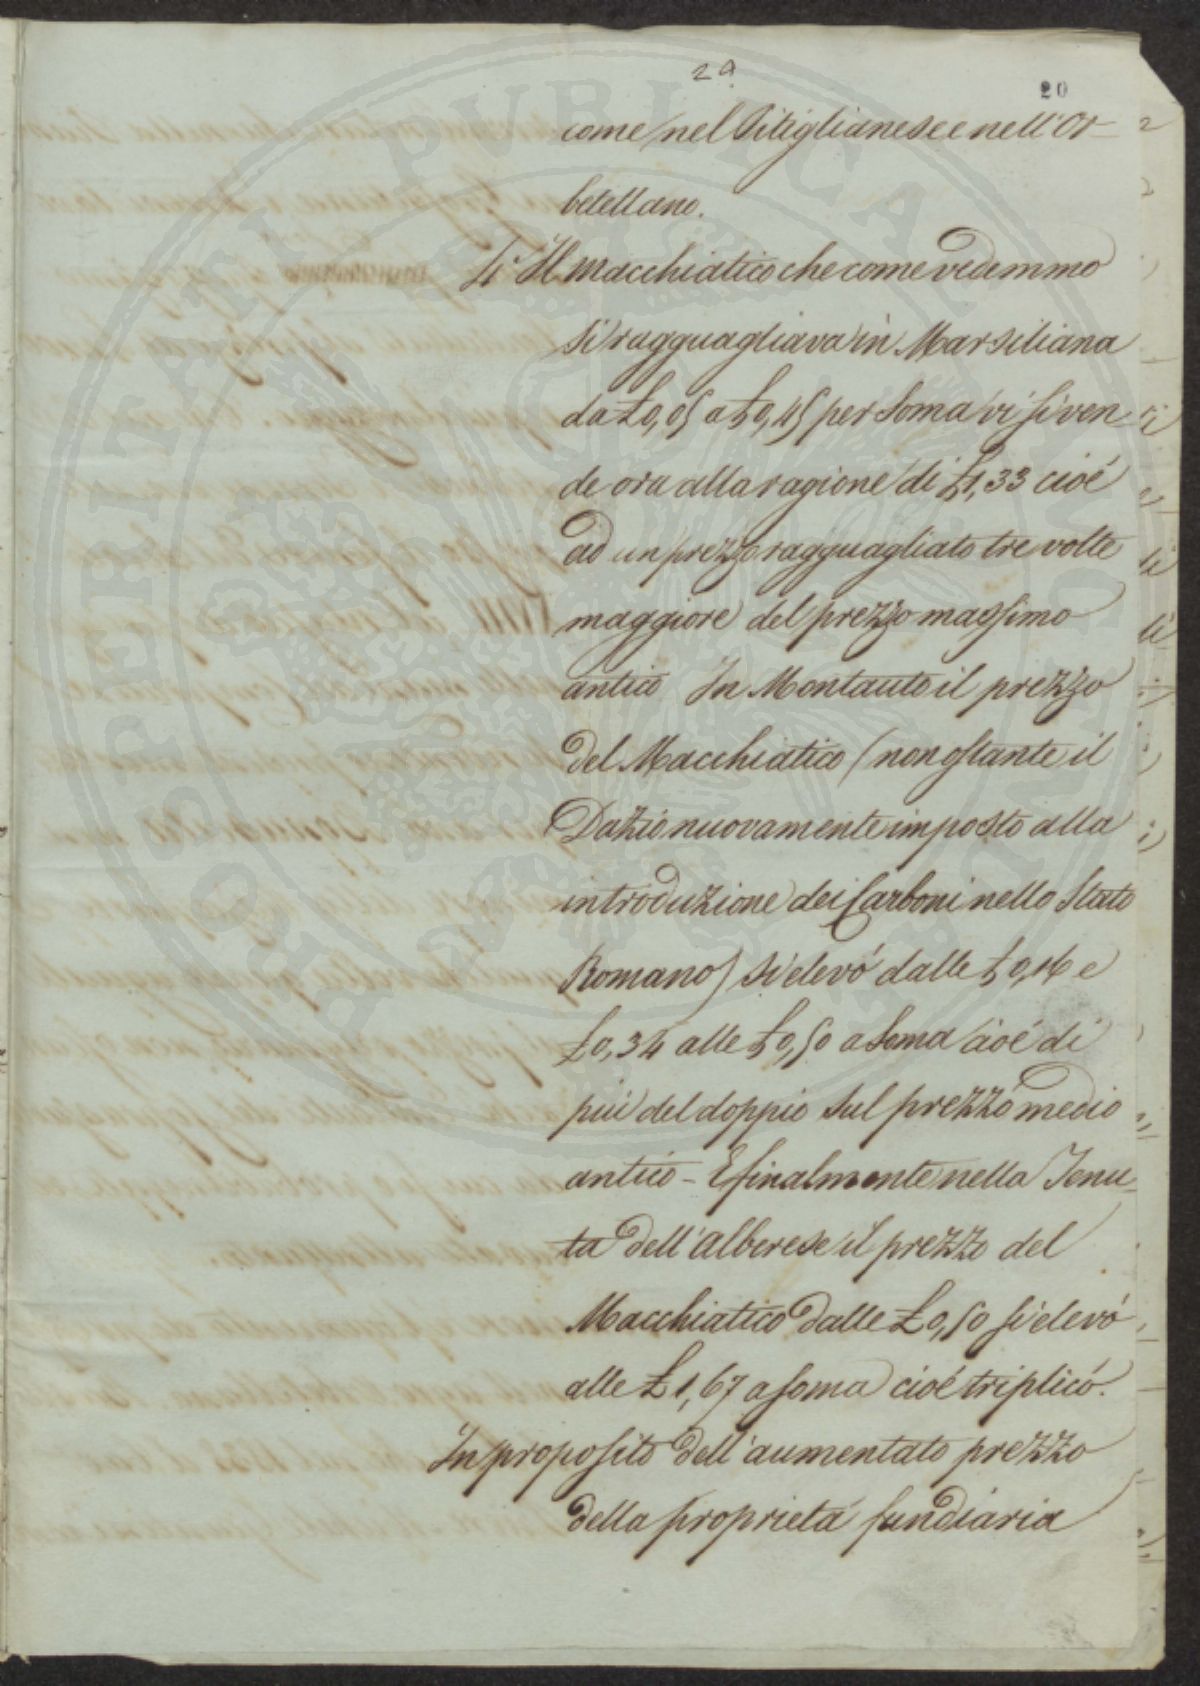 29
20
come nel Pitiglianese e nell'Or-
betellano.
4° Il macchiatico che come vedemmo
si ragguagliava in Marsiliana
da £0,05 a £0,45 per Soma vi si ven-
de ora alla ragione di £1,33 cioé
ad un prezzo ragguagliato tre volte
maggiore del prezzo massimo
antico In Montauto il prezzo
del Macchiatico (non ostante il
Dazio nuovamente imposto alla
introduzione dei Carboni nello Stato
Romano) si elevó dalle £0,16 e
£0,34 alle £0,50 a Soma cioé di
piú del doppio sul prezzo medio
antico - E finalmente nella Tenu-
ta dell'Alberese il prezzo del
Macchiatico dalle £0,50 si elevó
alle £1,67 a soma cioé triplicó.
In proposito dell'aumentato prezzo
della proprietá fundiaria
PROSPERITATI PVBLICAE